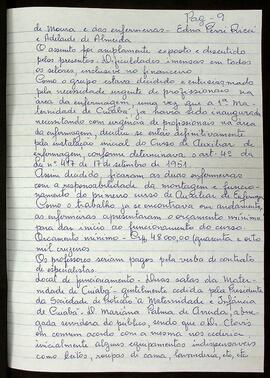 Pag-9
de Moura e das enfermeiras - Edna Perri Ricci
e Adelaide de Almeida
O assunto foi amplamente exposto e discutido
pelos presentes. Dificuldades imensas em todos
os setores, inclusive no financeiro
Como o grupo estava decidido e entusiasmado
pela necessidade urgente de profissionais na
área da enfermagem, uma vez que a 1ª Ma-
ternidade de Cuiabá, ja havia sido inaugurada,
necessitando com urgência de profissionais na área
da enfermagem, decidiu se então definitivamente
pela instalação inicial do Curso de Auxiliar de
Enfermagem, conforme determinava o art. 4º da
Lei nº 417 de 17 de setembro de 1951.
Assim decidido, ficaram as duas enfermeiras
com a responsabilidade da montagem e funcio-
namento do primeiro curso de Auxiliar de Enfermagem
Como o trabalho ja se encontrava em andamento,
as enfermeiras apresentaram o orçamento mínimo
para dar inicio ao funcionamento do curso.
Orçamento mínimo - 48.000,00 (quarenta e oito
mil cruzeiros
Os professores seriam pagos pela verba de contrato
de especialistas.
Local de funcionamento - Duas salas da Mater-
nidade de Cuiabá - gentilmente cedida pela Presidente
da Sociedade de Proteção à Maternidade e Infância
de Cuiabá. D. Mariana Palma de Arruda, abne-
gada servidora do público, sendo que a D. Clovis
em comum acordo com a mesma nos cederia
inicialmente alguns equipamentos indispensáveis
como leitos, roupas de cama, lavandria, etc, etc